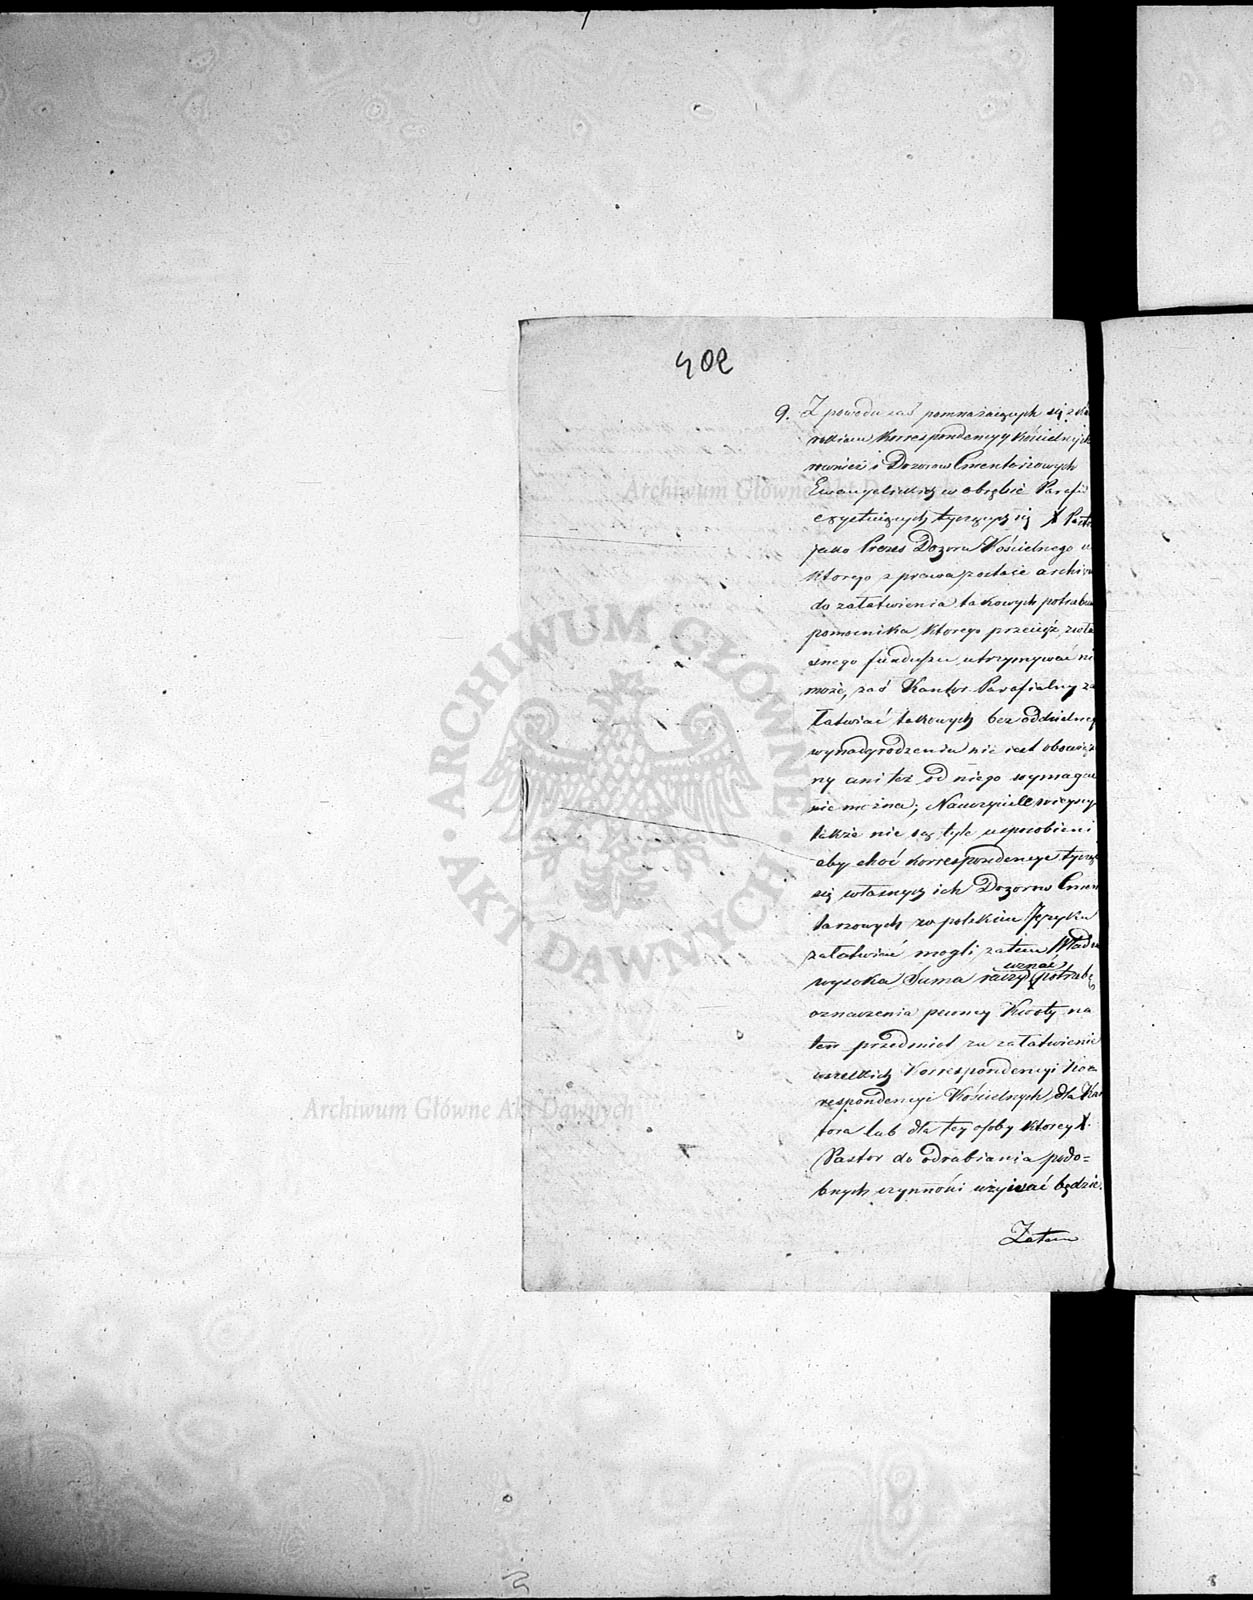 402
9. Z powodu zaś pomnażaiących się
Korrespondencyy Kościelnych
rownież i Dozorow Cmentarzowych
Ewangelickich w obrębie Parafii
exystuiących tyczących się X Pasto
jako Prezes Dozoru Kościelnego u
ktorego z prawa zostaie archiwu
do załatwienia takowych potrzebu
pomocnika, ktorego przecięż z wła
snego funduszu utrzymywać nie
może, zaś Kantor Parafialny za
łatwiać takowych bez oddzielneg
wynadgrodzenia nie iest obowiąza
ny ani też od niego wymagać
nie można; Nauczyciele wieyscy
także nie są tyle usposobieni
aby choć korrespondencye tyczące
się własnych ich Dozorow Cmen
tarzowych w polskim Języku
załatwiać mogli, zatem Władza
uznać
wysoka Sama raczy potrzebę
oznaczenia pewney Kwoty na
ten przedmiot za załatwienie
wszelkich Korrespondencyi Kor
respondencyi Kościelnych, dla Kan
tora lub dla tey osoby ktorey X.
Pastor do odrabiania podo=
bnych czynności używać będzie.
Zatem
Archiwum Główne Akt Dawnych
ARCHIWUM GŁÓWNE AKT DAWNYCH
Archiwum Główne Akt Dawnych